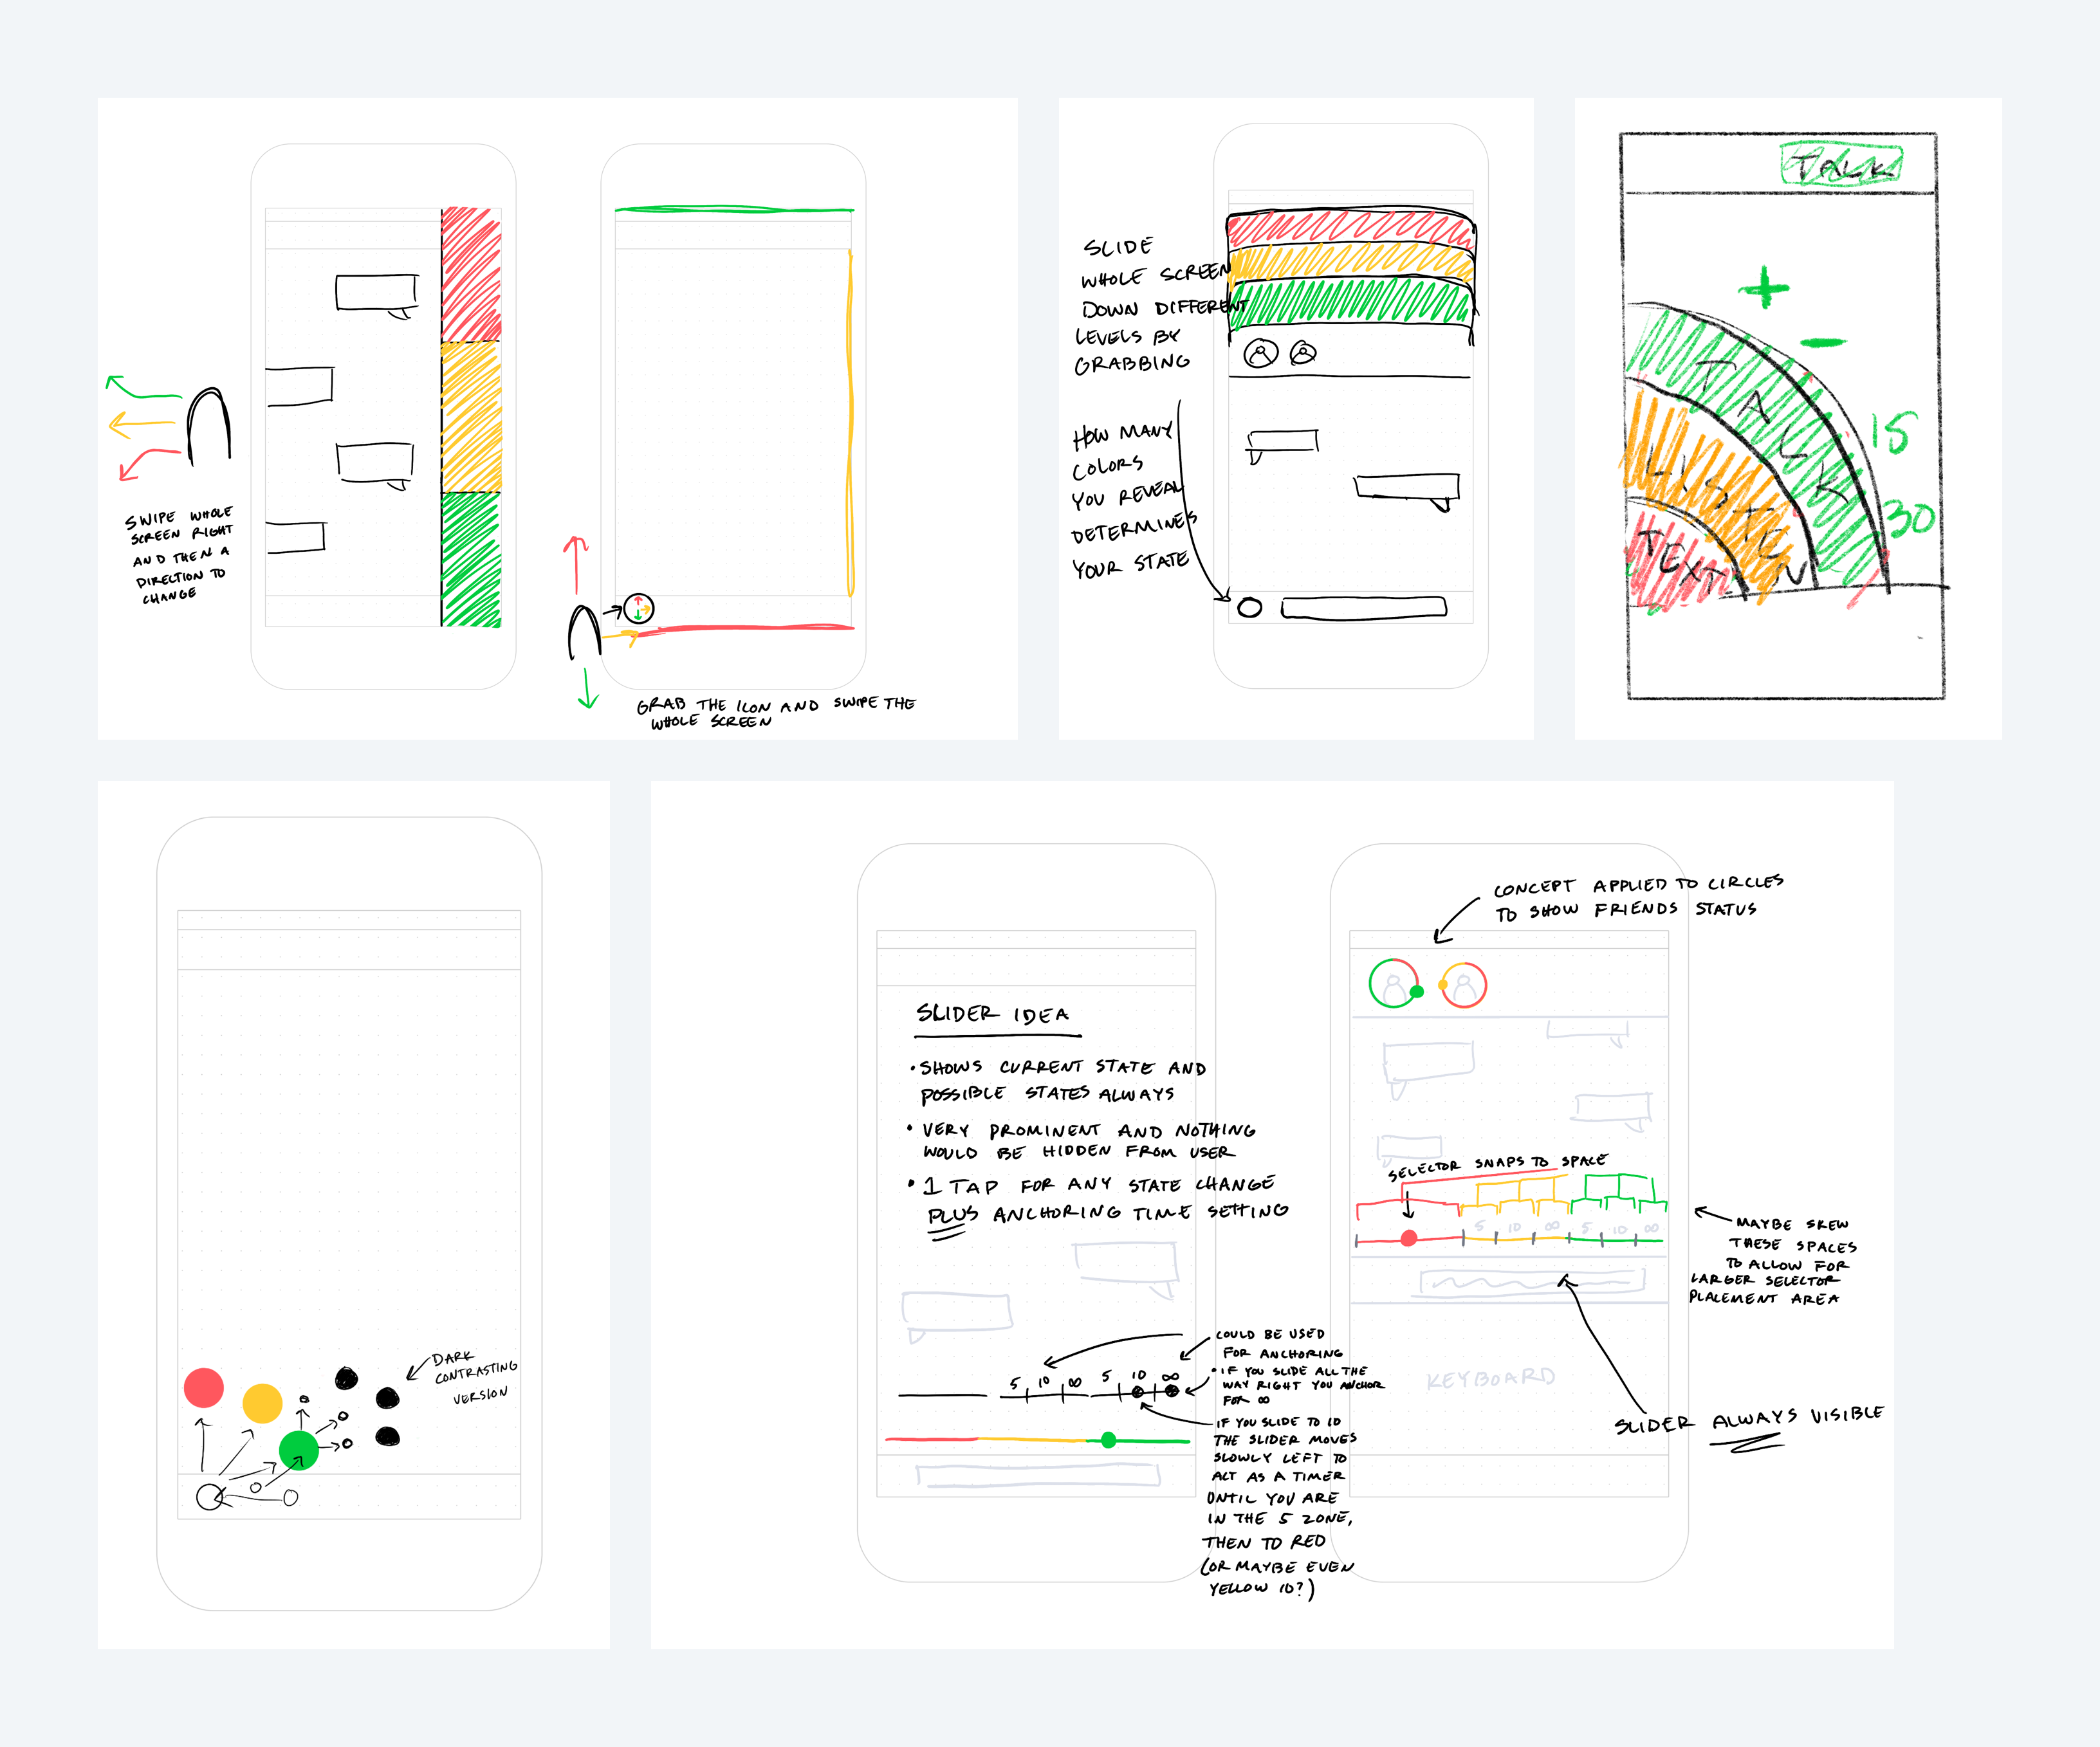 SWIPE WHOLE
SCREEN RIGHT
AND THEN A
DIRECTION TO
CHANGE
GRAB THE ICON AND SWIPE THE
WHOLE SCREEN
SLIDE
WHOLE SCREEN
DOWN DIFFERENT
LEVELS BY
GRABBING
HOW MANY
COLORS
YOU REVEAL
DETERMINES
YOUR STATE
TALK
+
-
15
30
TALK
LISTEN
TEXT
DARK
CONTRASTING
VERSION
SLIDER IDEA
• SHOWS CURRENT STATE AND
POSSIBLE STATES ALWAYS
• VERY PROMINENT AND NOTHING
WOULD BE HIDDEN FROM USER
• 1 TAP FOR ANY STATE CHANGE
PLUS ANCHORING TIME SETTING
5 10 ∞ 5 10 ∞
COULD BE USED
FOR ANCHORING
• IF YOU SLIDE ALL THE
WAY RIGHT YOU ANCHOR
FOR ∞
IF YOU SLIDE TO 10
THE SLIDER MOVES
SLOWLY LEFT TO
ALT AS A TIMER
UNTIL YOU ARE
IN THE 5 ZONE,
THEN TO RED
(OR MAYBE EVEN
YELLOW 10?)
CONCEPT APPLIED TO CIRCLES
TO SHOW FRIENDS STATUS
SELECTOR SNAPS TO SPACE
5 10 ∞ 5 10 ∞
MAYBE SKEW
THESE SPACES
TO ALLOW FOR
LARGER SELECTOR
PLACEMENT AREA
KEYBOARD
SLIDER ALWAYS VISIBLE